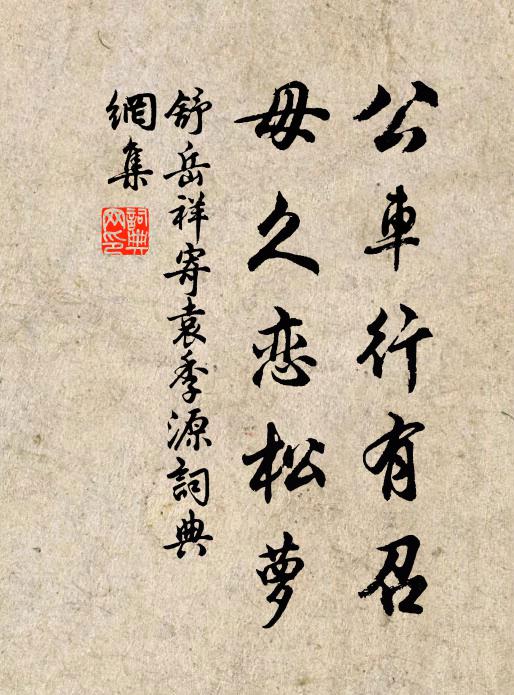 公車行有召
毋久恋松夢
舒岳祥寄袁季源詞典
網集
詞典網印